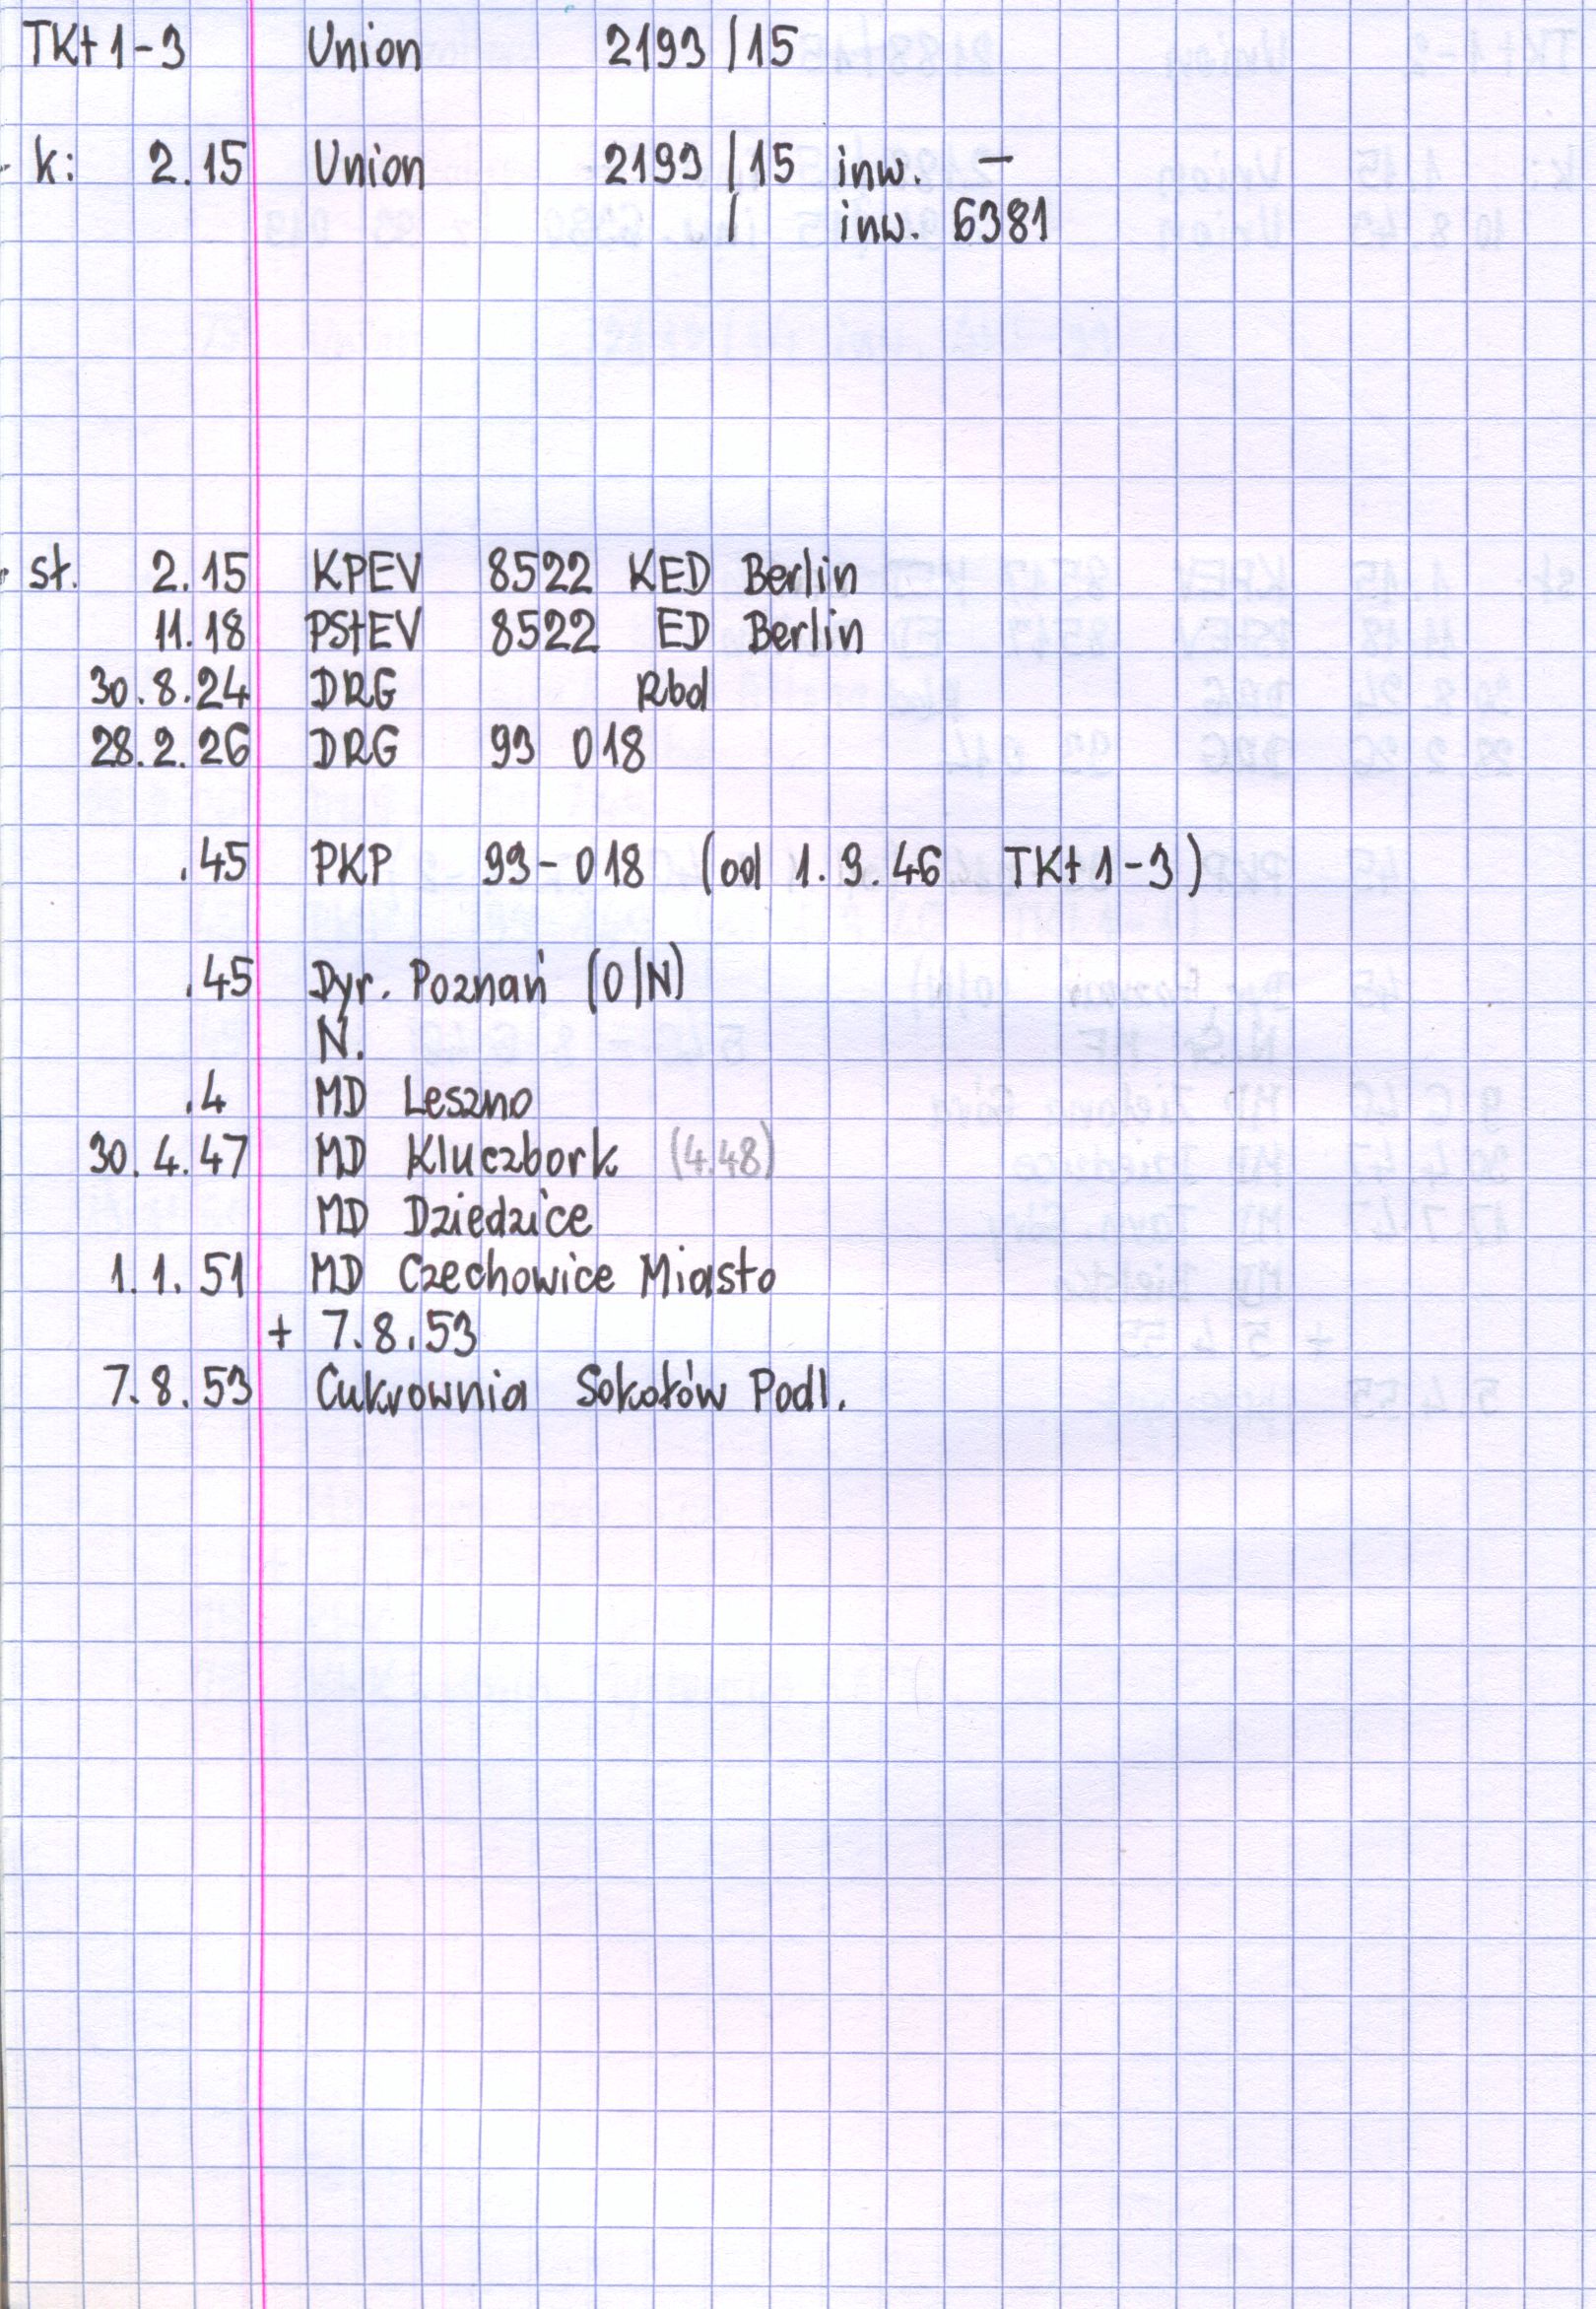 TKt 1-3 Union 2193/15
k: 2.15 Union 2193/15 inw. -
/ inw. 6381
st. 2.15 KPEV 8522 KED Berlin
11.18 PStEV 8522 ED Berlin
30.8.24 DRG Rbd
28.2.26 DRG 93 018
.45 PKP 93-018 (od 1.9.46 TKt 1-3)
.45 Dyr. Poznań (O/N)
N.
.4 MD Leszno
30.4.47 MD Kluczbork (4.48)
MD Dziedzice
1.1.51 MD Czechowice Miasto
+ 7.8.53
7.8.53 Cukrownia Sokołów Podl.